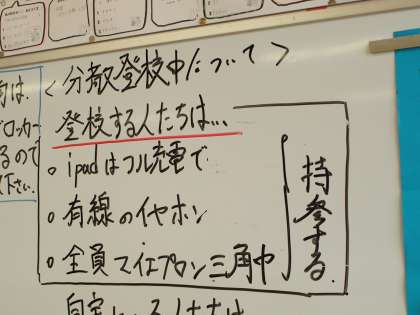 <分散登校中について>
登校する人たちは...
○ipadはフル充電で
○有線のイヤホン
○全員マイエプロン三角巾
持参する.
ロッカー
るので
下さい.